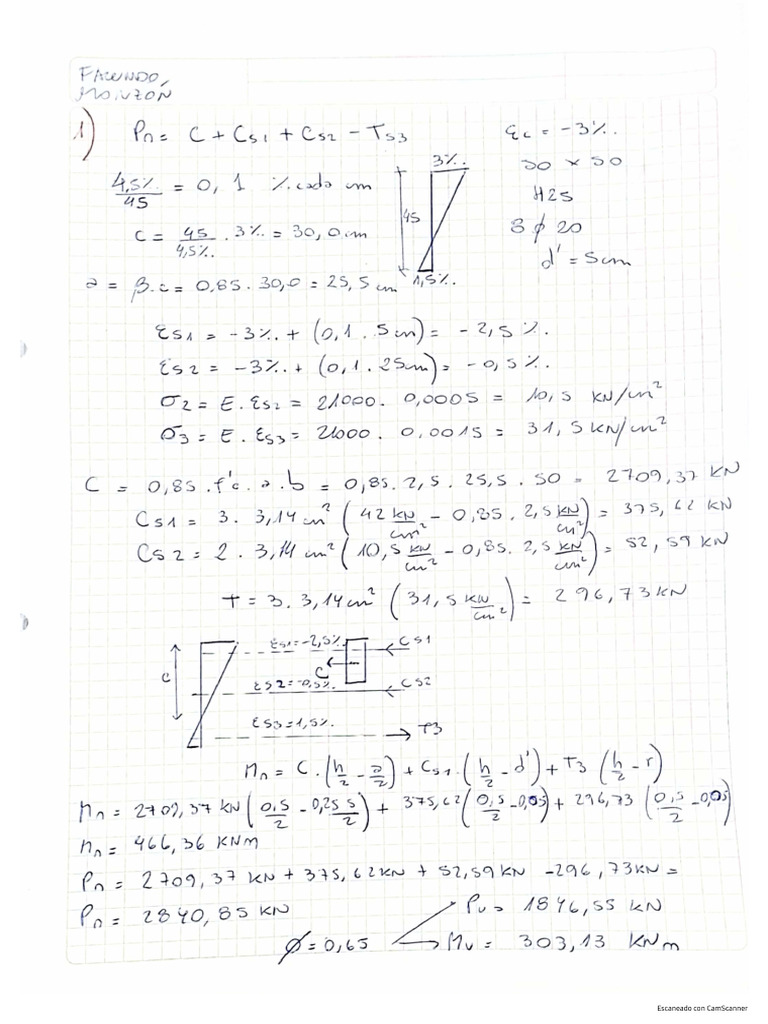 FACUNDO
MONZÓN
1) Pn = C + CS1 + CS2 - TS3
εc = -3‰.
50 x 50
H25
8 ϕ 20
d' = 5cm
4,5‰ / 45 = 0,1 ‰ cada cm
3‰.
45
1,5‰.
c = 45 / 4,5‰. . 3‰ = 30,0 cm
a = β.c = 0,85 . 30,0 = 25,5 cm
εS1 = -3‰. + (0,1 . 5cm) = -2,5‰.
εS2 = -3‰. + (0,1 . 25cm) = -0,5‰.
σ2 = E. εS2 = 21000. 0,0005 = 10,5 KN/cm²
σ3 = E. εS3 = 21000. 0,0015 = 31,5 KN/cm²
C = 0,85 . f'c . a . b = 0,85. 2,5 . 25,5 . 50 = 2709,37 KN
CS1 = 3. 3,14 cm² (42 KN/cm² - 0,85 . 2,5 KN/cm²) = 375,62 KN
CS2 = 2. 3,14 cm² (10,5 KN/cm² - 0,85. 2,5 KN/cm²) = 52,59 KN
T = 3. 3,14cm² (31,5 KN/cm²) = 296,73KN
εS1=-2,5‰. CS1
c C
εS2=-0,5‰. CS2
εS3=1,5‰. T3
Mn = C. (h/2 - a/2) + CS1. (h/2 - d') + T3 (h/2 - r)
Mn = 2709,37 KN (0,5/2 - 0,255/2) + 375,62 (0,5/2 - 0,05) + 296,73 (0,5/2 - 0,05)
Mn = 466,36 KNm
Pn = 2709,37 KN + 375,62KN + 52,59KN - 296,73KN =
Pn = 2840,85 KN
Pu = 1846,55 KN
ϕ = 0,65 Mu = 303,13 KNm
Escaneado con CamScanner